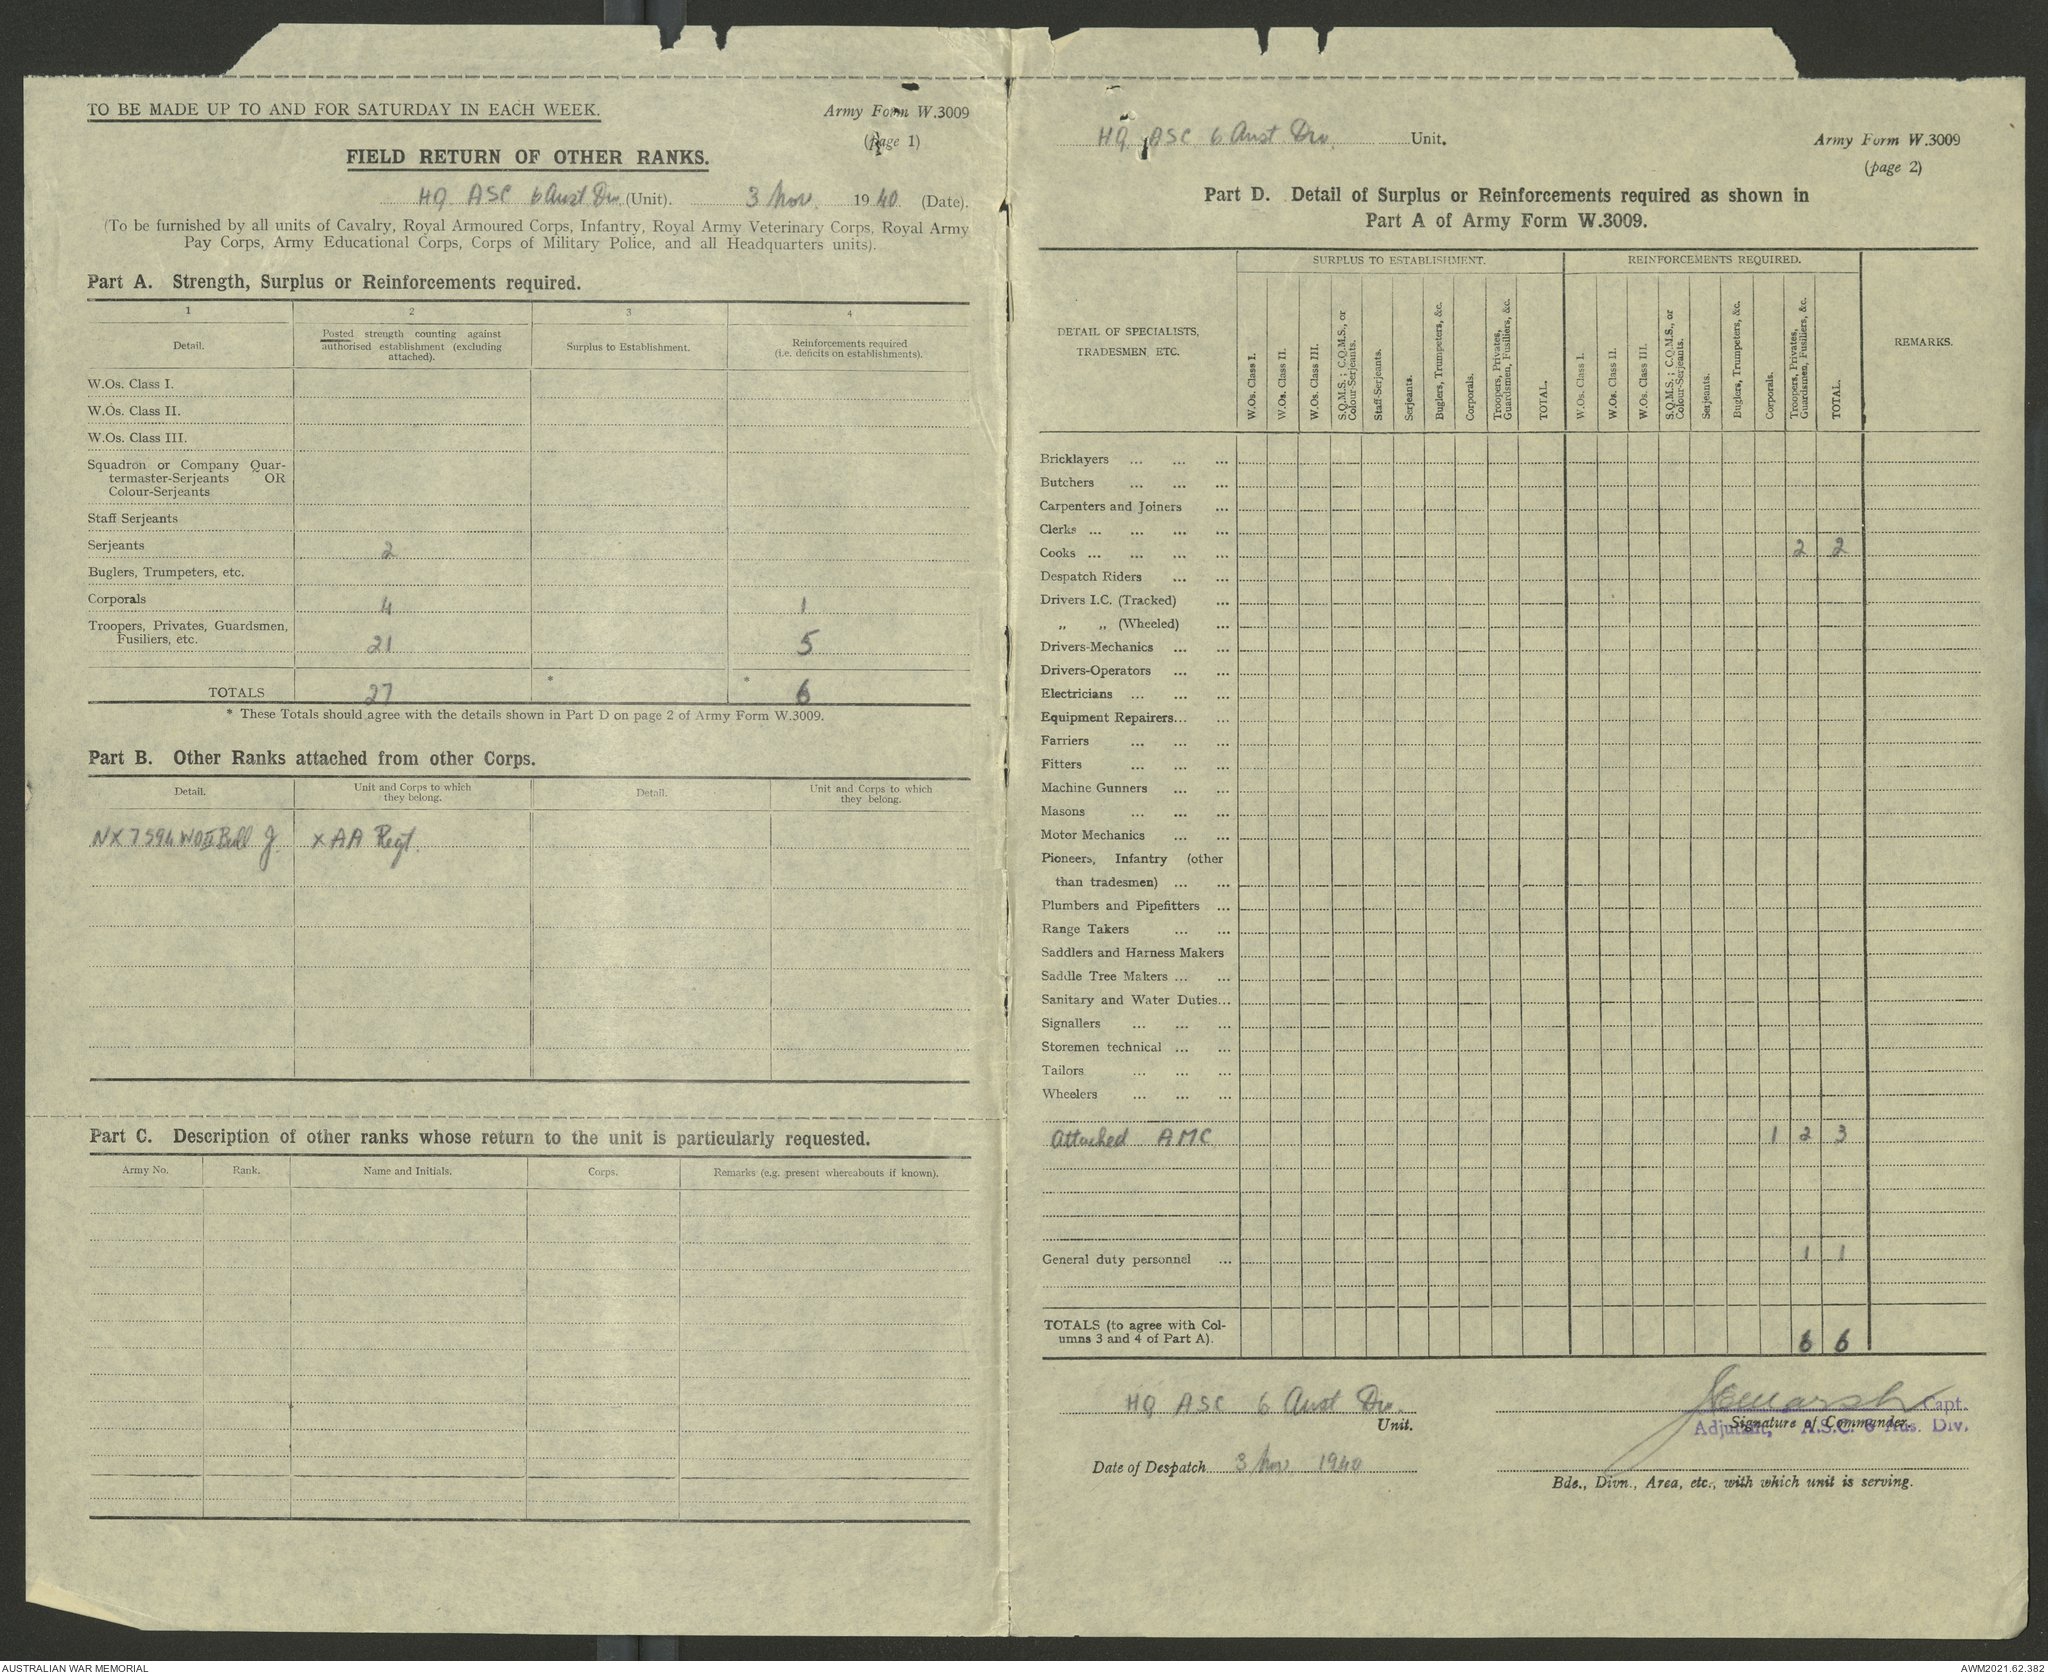 TO BE MADE UP TO AND FOR SATURDAY IN EACH WEEK.
Army Form W.3009
(page 1)
FIELD RETURN OF OTHER RANKS.
HQ ASC 6 Aust Div. (Unit). 3 Nov. 1940. (Date).
(To be furnished by all units of Cavalry, Royal Armoured Corps, Infantry, Royal Army Veterinary Corps, Royal Army
Pay Corps, Army Educational Corps, Corps of Military Police, and all Headquarters units).
Part A. Strength, Surplus or Reinforcements required.
1 2 3 4
Detail.
Posted strength counting against
authorised establishment (excluding
attached).
Surplus to Establishment.
Reinforcements required
(i.e. deficits on establishments).
W.Os. Class I.
W.Os. Class II.
W.Os. Class III.
Squadron or Company Quar-
termaster-Serjeants OR
Colour-Serjeants
Staff Serjeants
Serjeants 2
Buglers, Trumpeters, etc.
Corporals 4 1
Troopers, Privates, Guardsmen,
Fusiliers, etc. 21 5
TOTALS 27 * * 6
* These Totals should agree with the details shown in Part D on page 2 of Army Form W.3009.
Part B. Other Ranks attached from other Corps.
Detail.
Unit and Corps to which
they belong.
Detail.
Unit and Corps to which
they belong.
NX7594 WOII Bell J. X AA Regt.
Part C. Description of other ranks whose return to the unit is particularly requested.
Army No. Rank. Name and Initials. Corps. Remarks (e.g. present whereabouts if known).
HQ ASC 6 Aust. Div. Unit.
Army Form W.3009
(page 2)
Part D. Detail of Surplus or Reinforcements required as shown in
Part A of Army Form W.3009.
DETAIL OF SPECIALISTS,
TRADESMEN, ETC.
SURPLUS TO ESTABLISHMENT.
W.Os. Class I.
W.Os. Class II.
W.Os. Class III.
S.Q.M.S.; C.Q.M.S., or
Colour-Serjeants.
Staff-Serjeants.
Serjeants.
Buglers, Trumpeters, &c.
Corporals.
Troopers, Privates,
Guardsmen, Fusiliers, &c.
TOTAL.
REINFORCEMENTS REQUIRED.
W.Os. Class I.
W.Os. Class II.
W.Os. Class III.
S.Q.M.S.; C.Q.M.S., or
Colour-Serjeants.
Serjeants.
Buglers, Trumpeters, &c.
Corporals.
Troopers, Privates,
Guardsmen, Fusiliers, &c.
TOTAL.
REMARKS.
Bricklayers ... ... ...
Butchers ... ... ...
Carpenters and Joiners ...
Clerks ... ... ... ...
Cooks ... ... ... ... 2 2
Despatch Riders ... ...
Drivers I.C. (Tracked) ...
„ „ (Wheeled) ...
Drivers-Mechanics ... ...
Drivers-Operators ... ...
Electricians ... ... ...
Equipment Repairers... ...
Farriers ... ... ...
Fitters ... ... ...
Machine Gunners ... ...
Masons ... ... ...
Motor Mechanics ... ...
Pioneers, Infantry (other
than tradesmen) ... ...
Plumbers and Pipefitters ...
Range Takers ... ...
Saddlers and Harness Makers
Saddle Tree Makers ... ...
Sanitary and Water Duties...
Signallers ... ... ...
Storemen technical ... ...
Tailors ... ... ...
Wheelers ... ... ...
Attached AMC 1 2 3
General duty personnel ... 1 1
TOTALS (to agree with Col-
umns 3 and 4 of Part A). 6 6
HQ ASC 6 Aust Div.
Unit.
Capt.
Signature of Commander.
Adjutant, A.S.C. 6 Aus. Div.
Date of Despatch 3 Nov 1940
Bde., Divn., Area, etc., with which unit is serving.
AUSTRALIAN WAR MEMORIAL
AWM2021.62.382